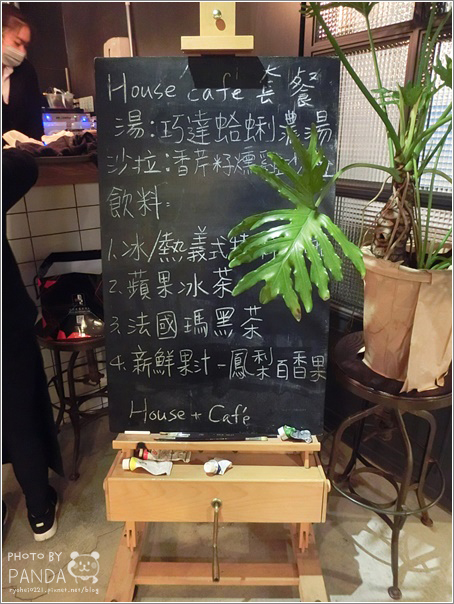 House café 套餐
湯:巧達蛤蜊濃湯
沙拉:香芹籽燻雞沙拉
飲料:
1.冰/熱義式
2.蘋果冰茶
3.法國瑪黑茶
4.新鮮果汁-鳳梨百香果
House + Café
PHOTO BY
PANDA